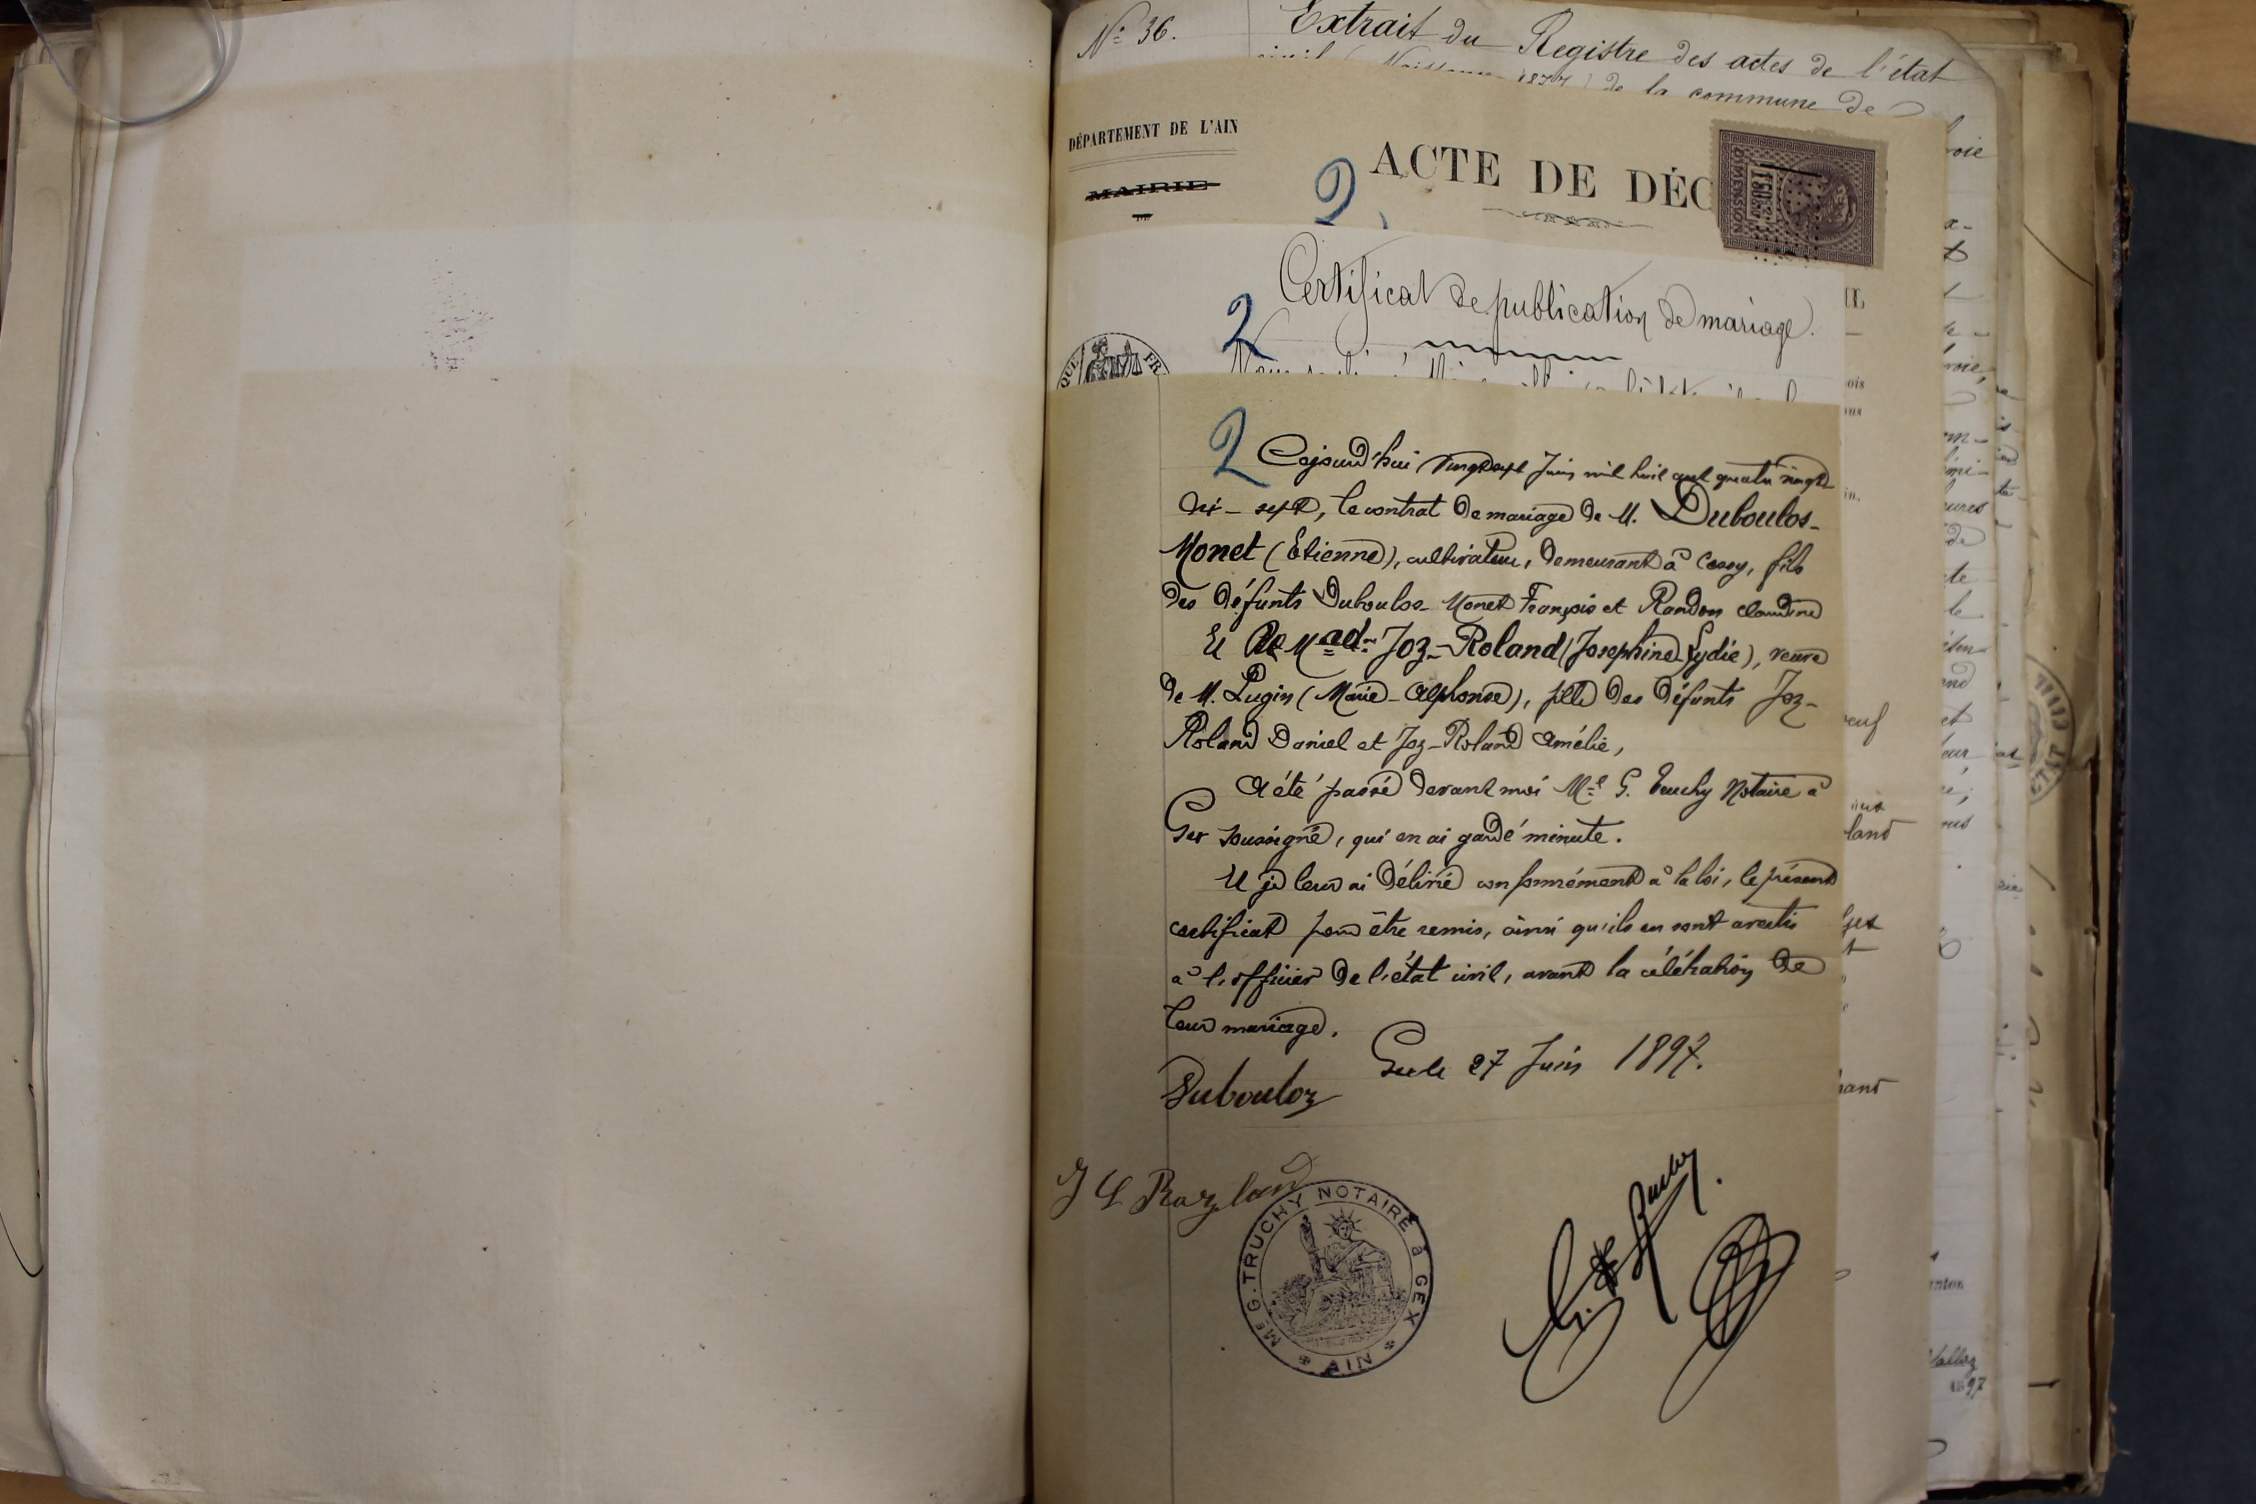 Nº 36.
Extrait du Registre des actes de l'état
de la commune de
DÉPARTEMENT DE L'AIN
MAIRIE
2
ACTE DE DÉC
Certificat de publication de mariage.
2
QUE FR
2
Cejourd'hui vingt sept Juin mil huit cent quatre vingt
dix-sept, le contrat de mariage de M. Duboulos-
Monet (Etienne), cultivateur, demeurant à Cessy, fils
des défunts Duboulos-Monet François et Randon Claudine
Et de Mad. Joz-Roland (Josephine-Lydie), veuve
de M. Lugin (Marie-Alphonse), fille des défunts Joz-
Roland Daniel et Joz-Roland Amélie,
A été passé devant moi Me G. Truchy Notaire à
Gex soussigné, qui en ai gardé minute.
Et je leur ai délivré conformément à la loi, le présent
certificat pour être remis, ainsi qu'ils en sont avertis
à l'officier de l'état civil, avant la célébration de
leur mariage.
Gex le 27 Juin 1897.
Dubouloz
J L Rozland
Me G. TRUCHY NOTAIRE à GEX
AIN